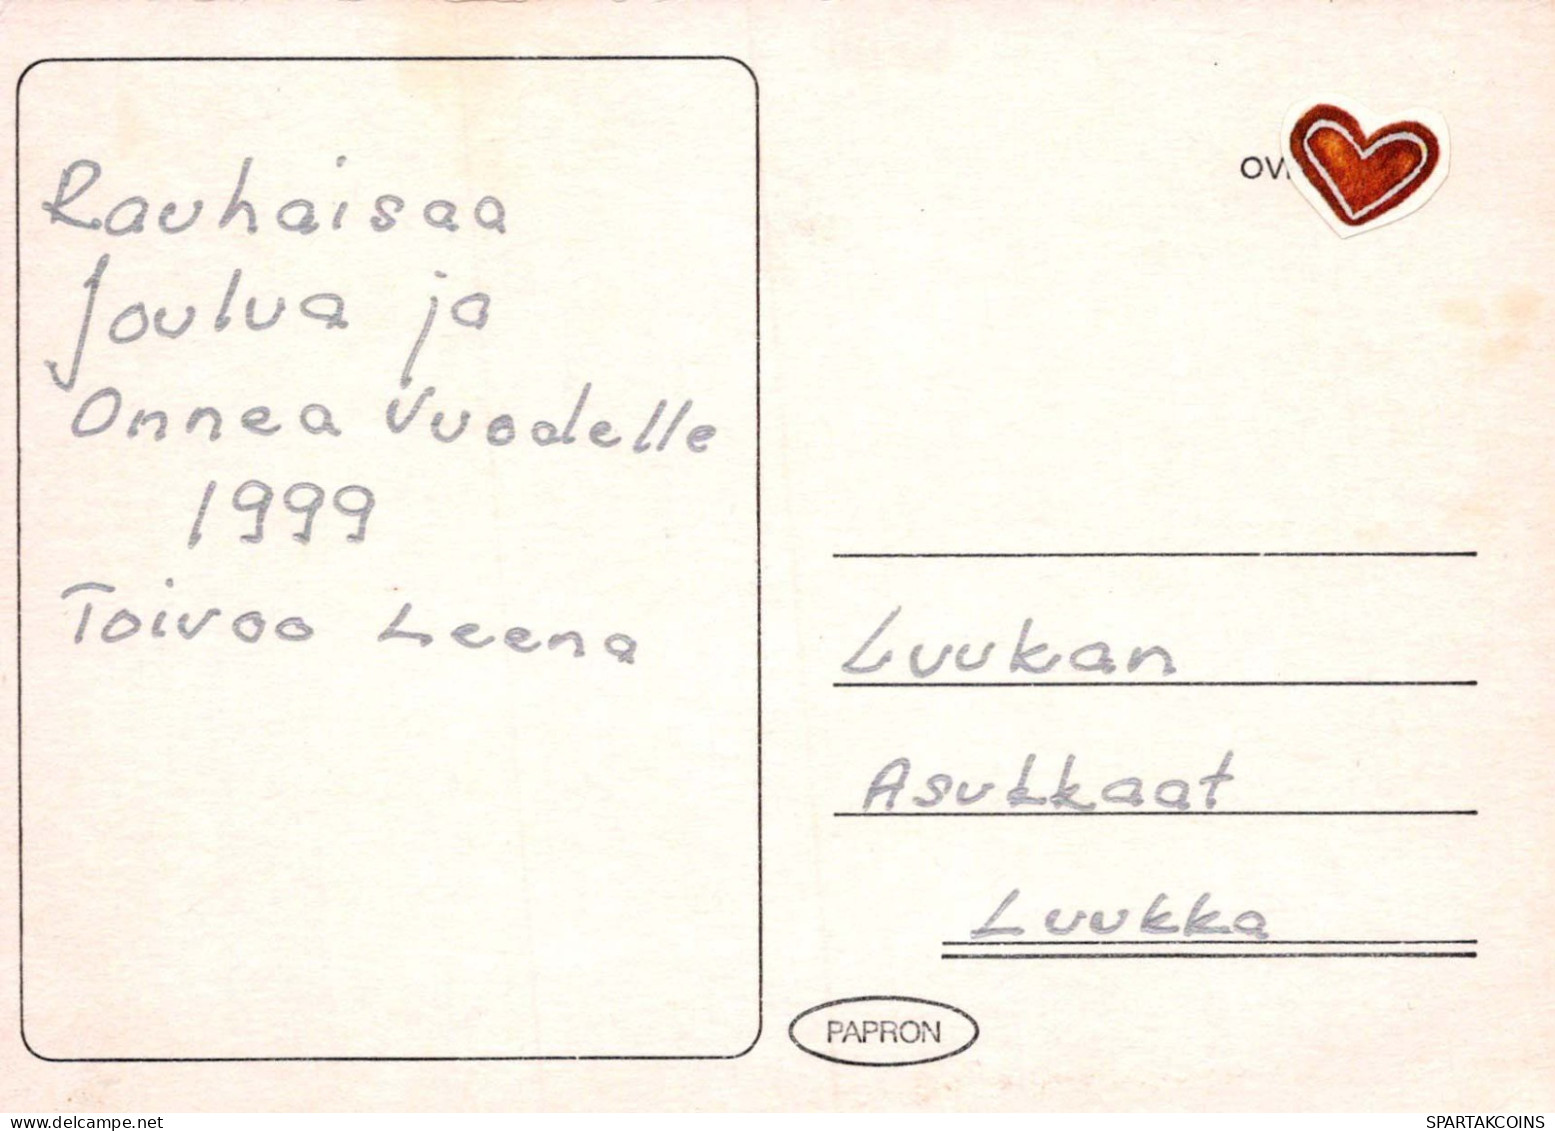 Rauhaisaa
Joulua ja
Onnea Vuodelle
1999
Toivoo Leena
Luukan
Asukkaat
Luukka
PAPRON
delcampe.net
SPARTAKCOINS